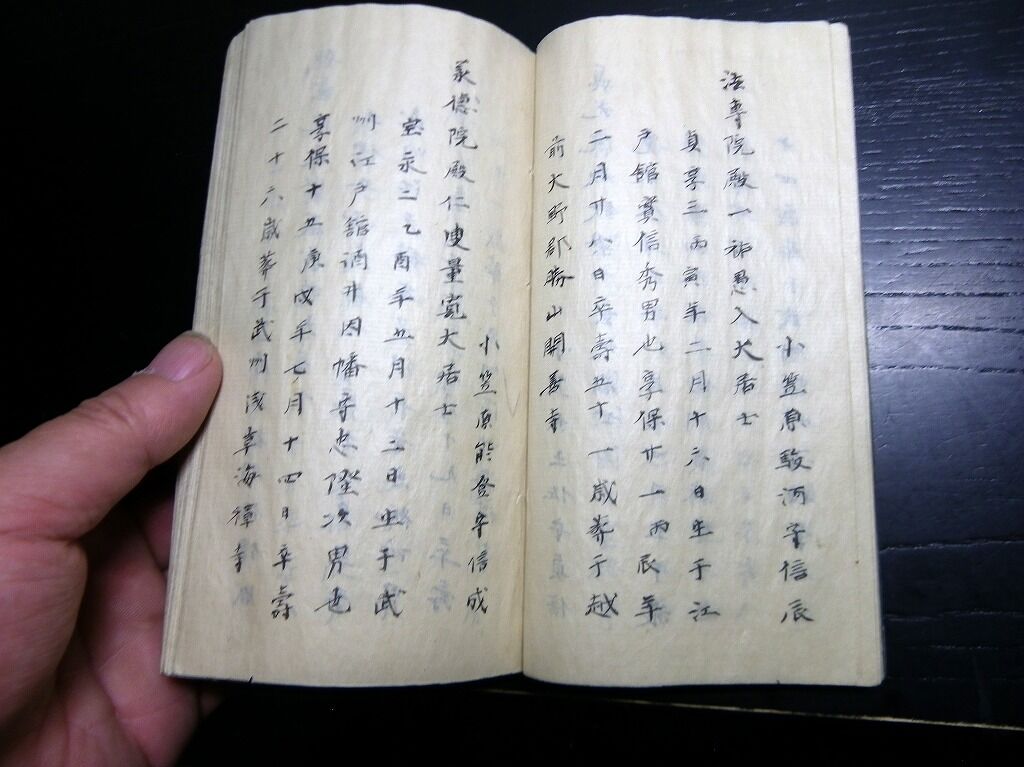 小笠原駿河守信辰
法専院殿一視愚入大居士
貞享三丙寅年二月十六日生于江
戸舘實信秀男也享保廿一丙辰年
二月廿八日卒壽五十一歳葬于越
前大野郡勝山開善寺
小笠原能登守信成
義徳院殿仁山量寛大居士
宝永二乙酉年五月十二日生于武
州江戸舘酒井因幡守忠隆次男也
享保十五庚戌年七月十四日卒壽
二十六歳葬于武州浅草海禅寺